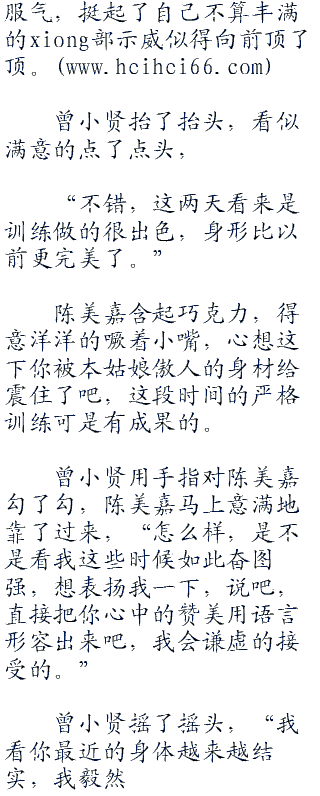 服气，挺起了自己不算丰满
的xiong部示威似得向前顶了
顶。(www.hcihci66.com)
曾小贤抬了抬头，看似
满意的点了点头，
“不错，这两天看来是
训练做的很出色，身形比以
前更完美了。”
陈美嘉含起巧克力，得
意洋洋的噘着小嘴，心想这
下你被本姑娘傲人的身材给
震住了吧，这段时间的严格
训练可是有成果的。
曾小贤用手指对陈美嘉
勾了勾，陈美嘉马上意满地
靠了过来，“怎么样，是不
是看我这些时候如此奋图
强，想表扬我一下，说吧，
直接把你心中的赞美用语言
形容出来吧，我会谦虚的接
受的。”
曾小贤摇了摇头，“我
看你最近的身体越来越结
实，我毅然